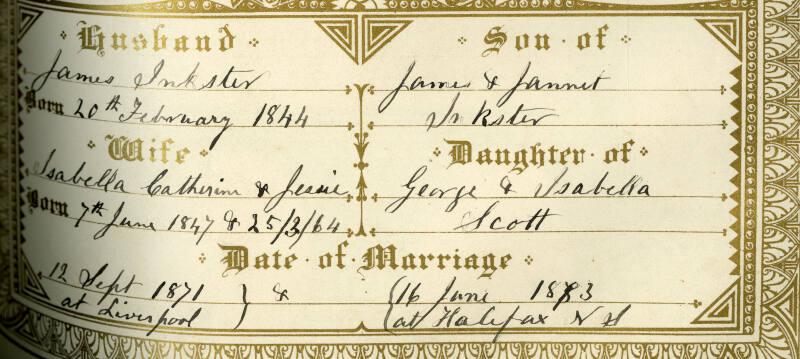 Husband
Son of
James Inkster
James & Jannet
Born 20th February 1844
Inkster
Wife
Daughter of
Isabella Catherine & Jessie
George & Isabella
Born 7th June 1847 & 25/3/64
Scott
Date of Marriage
12 Sept 1871 } & { 16 June 1883
at Liverpool
at Halifax N S